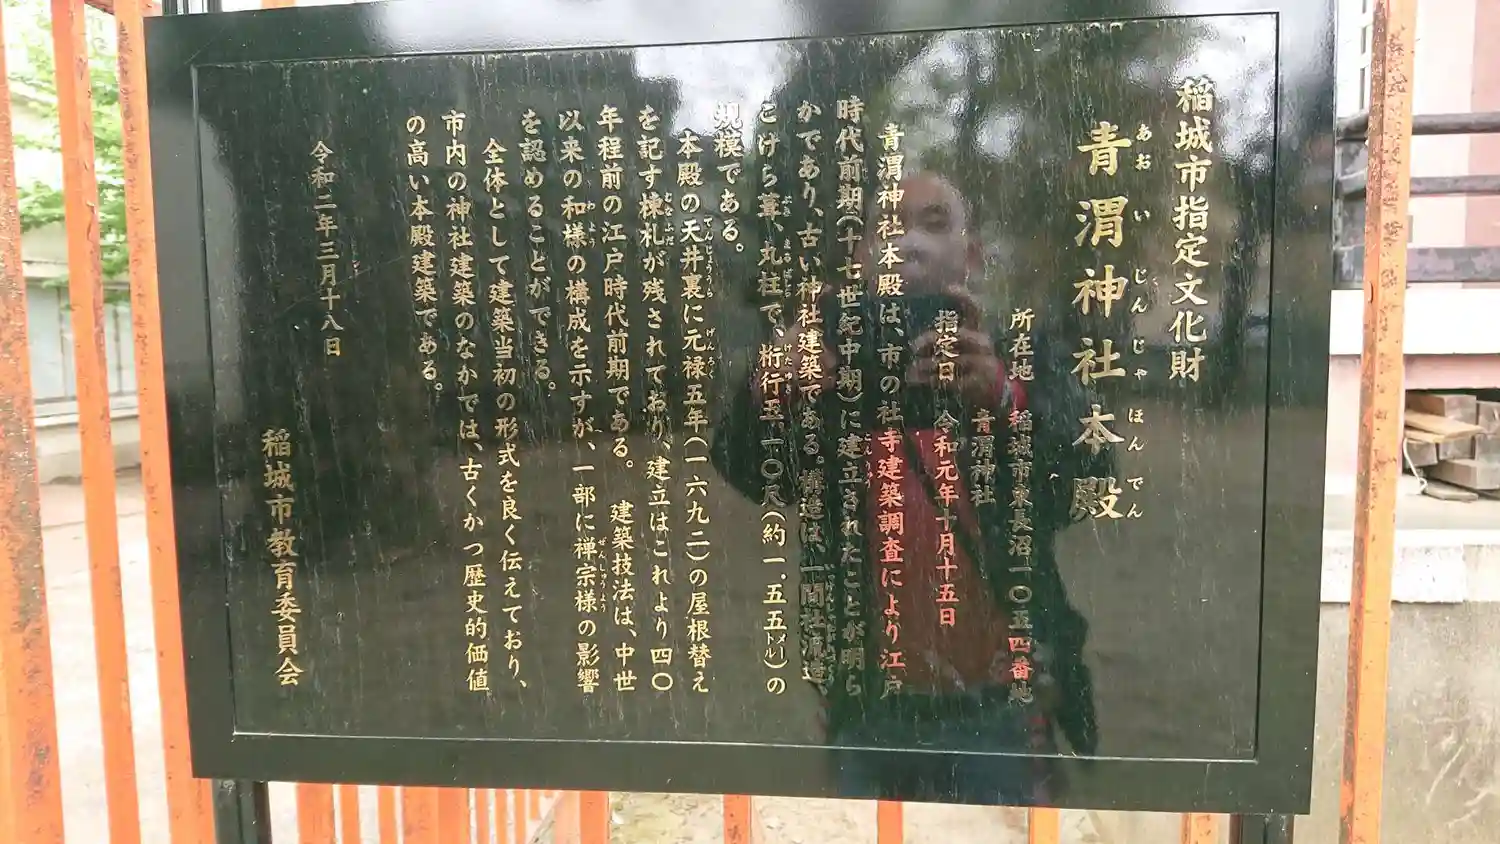 稲城市指定文化財
青渭神社本殿
あおいじんじゃほんでん
所在地 稲城市東長沼一〇五四番地
青渭神社
指定日 令和元年十月十五日
青渭神社本殿は、市の社寺建築調査により江戸
時代前期(十七世紀中期)に建立されたことが明ら
こんりゅう
かであり、古い神社建築である。構造は、一間社流造
こけら葺、丸柱で、桁行五.一〇尺(約一.五五メートル)の
ぶき まるばしら けたゆき
規模である。
本殿の天井裏に元禄五年(一六九二)の屋根替え
てんじょううら げんろく
を記す棟札が残されており、建立はこれより四〇
むなふだ
年程前の江戸時代前期である。 建築技法は、中世
以来の和様の構成を示すが、一部に禅宗様の影響
わよう ぜんしゅうよう
を認めることができる。
全体として建築当初の形式を良く伝えており、
市内の神社建築のなかでは、古くかつ歴史的価値
の高い本殿建築である。
令和二年三月十八日
稲城市教育委員会